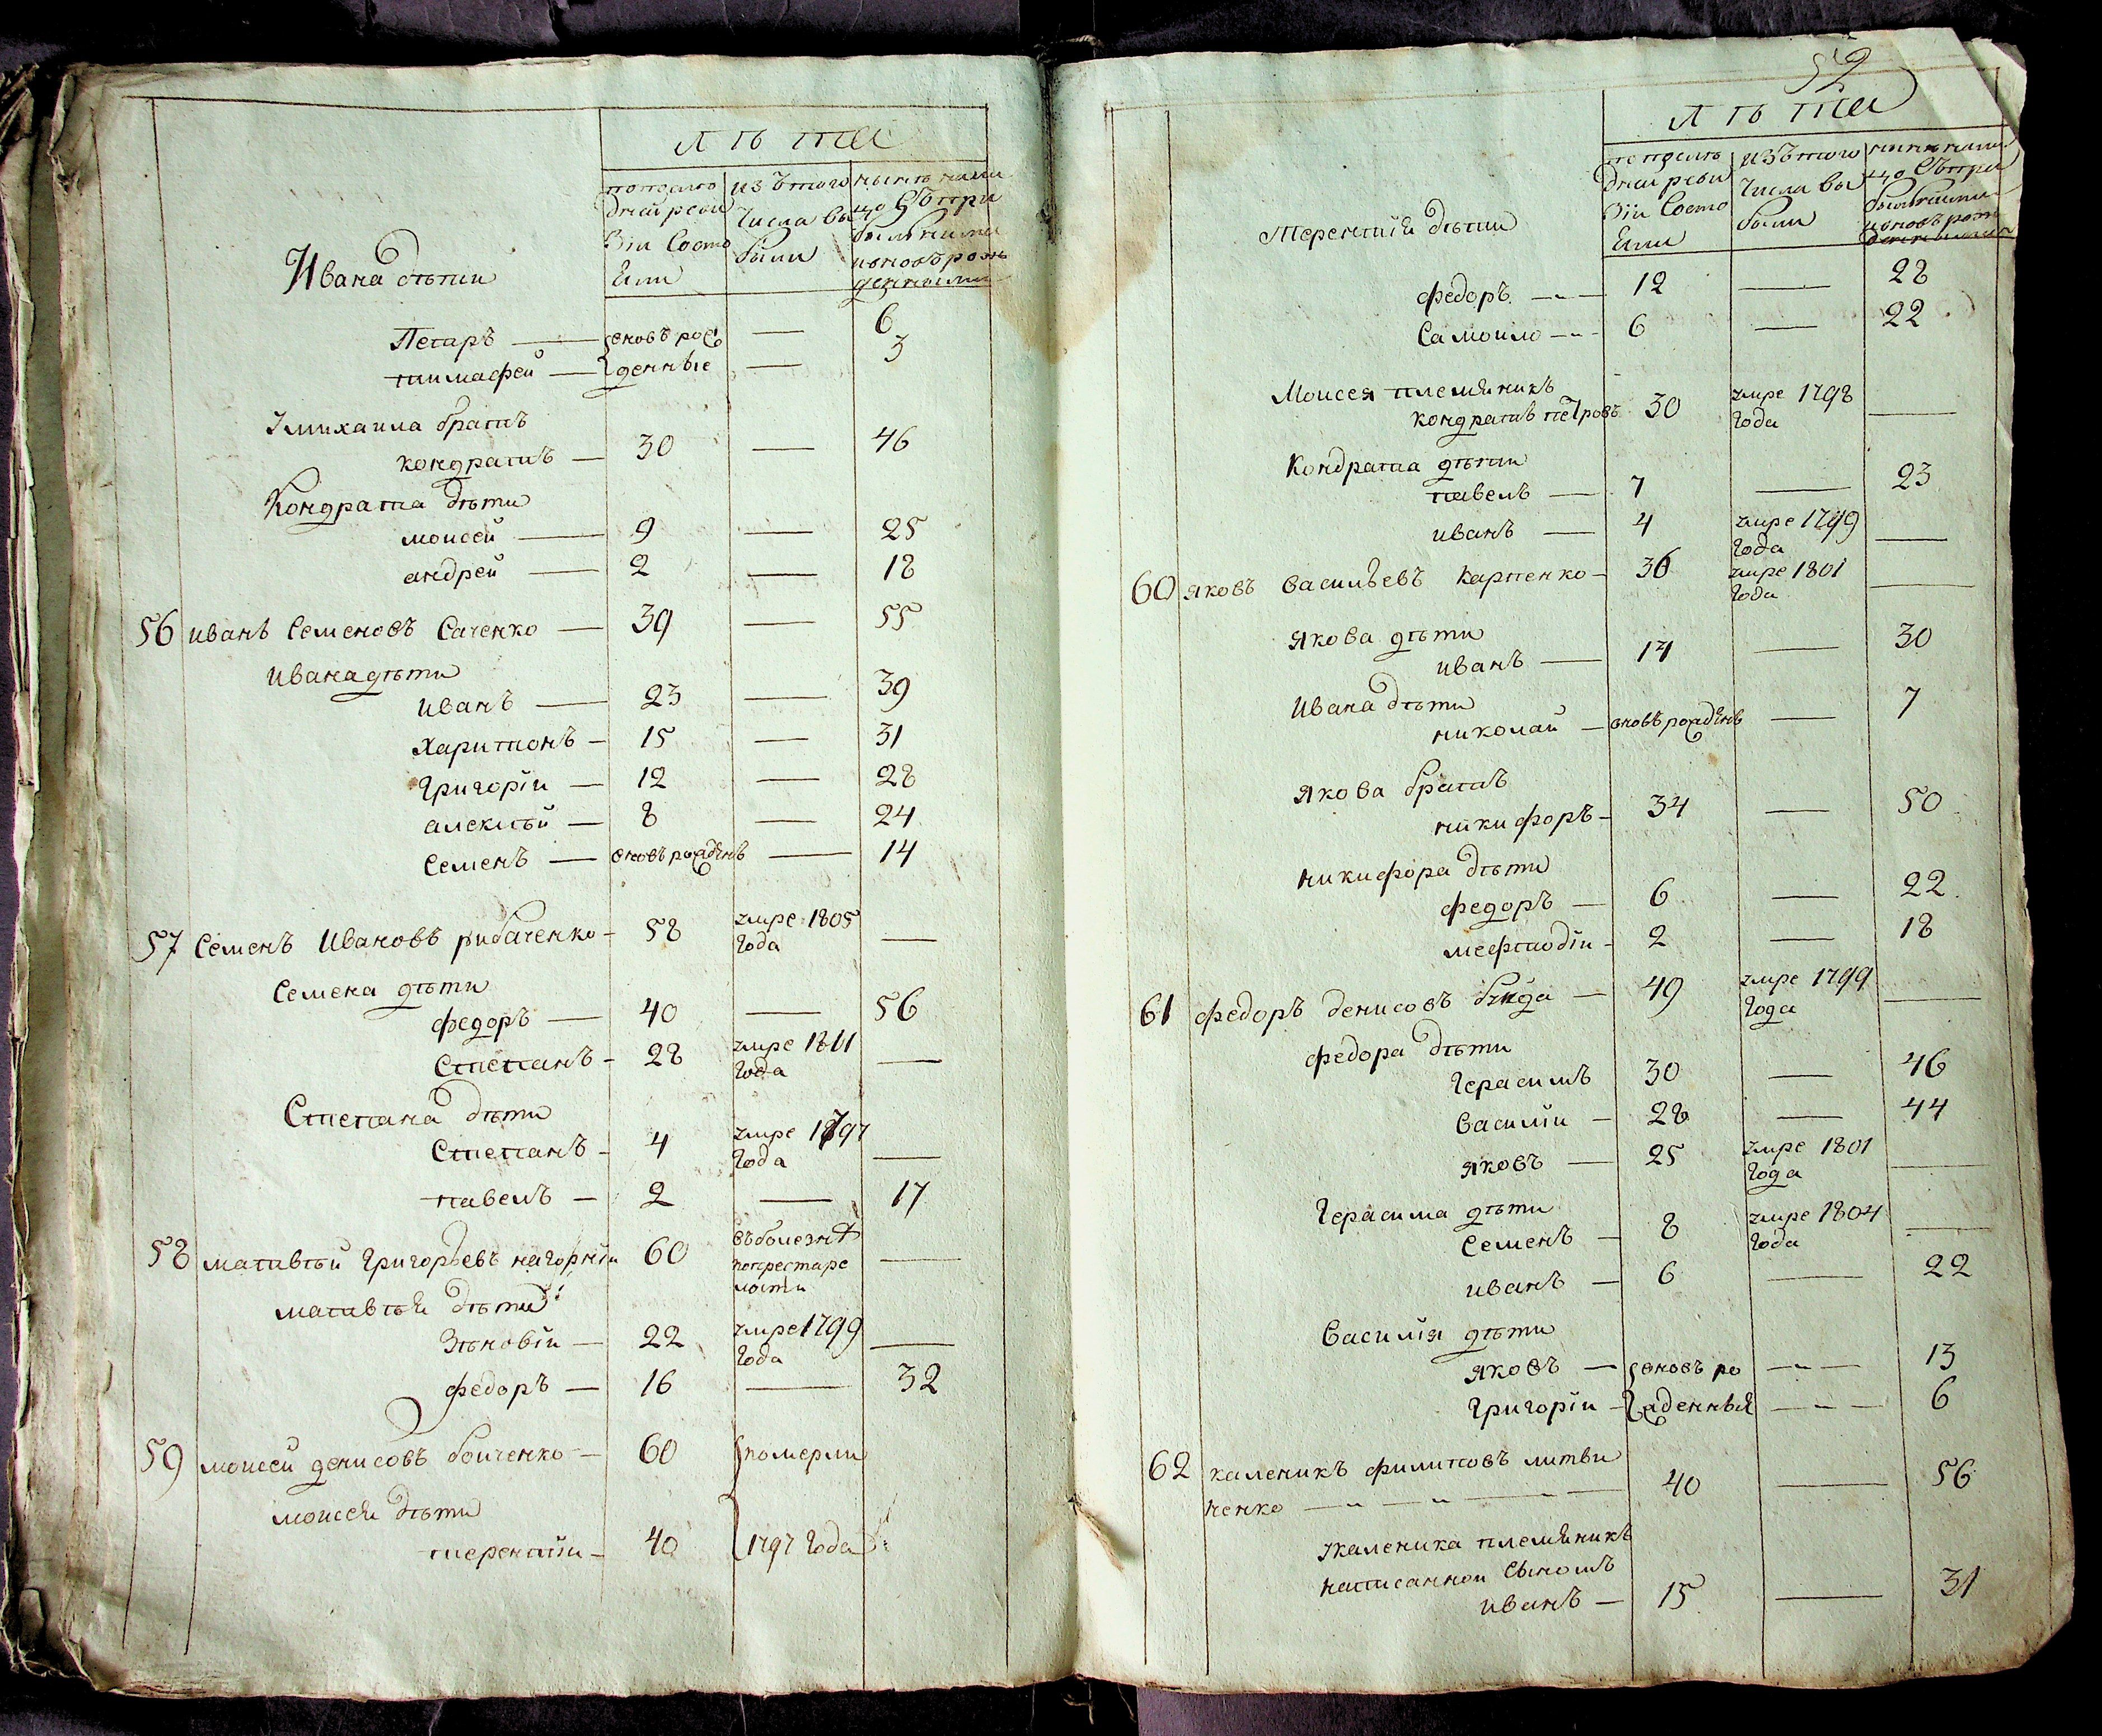 лѣта
по послѣ изъ того нынѣ нали
дней реви числа вы цо съ при
зіи состо были былыми
яли и вновь рож
денными
Ивана дѣти
Петръ — вновь рож — 6
тимафей — денные — 3
михаила братъ
кондратъ — 30 — 46
Кондрата дѣти
моисей — 9 — 25
андрей — 2 — 18
56 иванъ Семеновъ Саченко — 39 — 55
Ивана дѣти
иванъ — 23 — 39
Харитонъ — 15 — 31
Григоріи — 12 — 28
алексѣй — 8 — 24
Семенъ — вновь рожденъ — 14
57 Семенъ Ивановъ рибаченко — 58 умре 1805 —
года
Семена дѣти
федоръ — 40 — 56
Степанъ — 28 умре 1811 —
года
Степана дѣти
Степанъ — 4 умре 1797 —
года
павелъ — 2 — 17
58 матвѣй Григорьевъ нагорніи 60 въ болезнѣ —
попрестаре
лости
матвѣя дѣти
Зѣновіи — 22 умре 1799 —
года
федоръ — 16 — 32
59 моисеи денисовъ боиченко — 60 померли
моисея дѣти
терентіи — 40 1797 года
52
лѣта
по послѣ изъ того нынѣ нали
дней реви числа вы цо съ при
зіи состо были былыми
яли и вновь рож
денными
Терентія дѣти
федоръ — 12 — 28
Самоило — 6 — 22
Моисея племяникъ
кондратъ петровъ 30 умре 1798 —
года
Кондрата дѣти
павелъ — 7 — 23
иванъ — 4 умре 1799 —
года
60 яковъ Васильевъ Карпенко — 36 умре 1801 —
года
Якова дѣти
иванъ — 14 — 30
Ивана дѣти
николаи — вновь рожденъ — 7
Якова братъ
никифоръ — 34 — 50
никифора дѣти
федоръ — 6 — 22
мефтодіи — 2 — 18
61 федоръ денисовъ — 49 умре 1799 —
года
федора дѣти
Герасимъ 30 — 46
Василіи — 28 — 44
яковъ — 25 умре 1801 —
года
Герасима дѣти
Семенъ — 8 умре 1804 —
года
иванъ — 6 — 22
Василія дѣти
яковъ — вновь ро — 13
Григоріи — жденныя — 6
62 каленикъ филиповъ литви
ненко — 40 — 56
каленика племяникъ
написаннои сыномъ
иванъ — 15 — 31